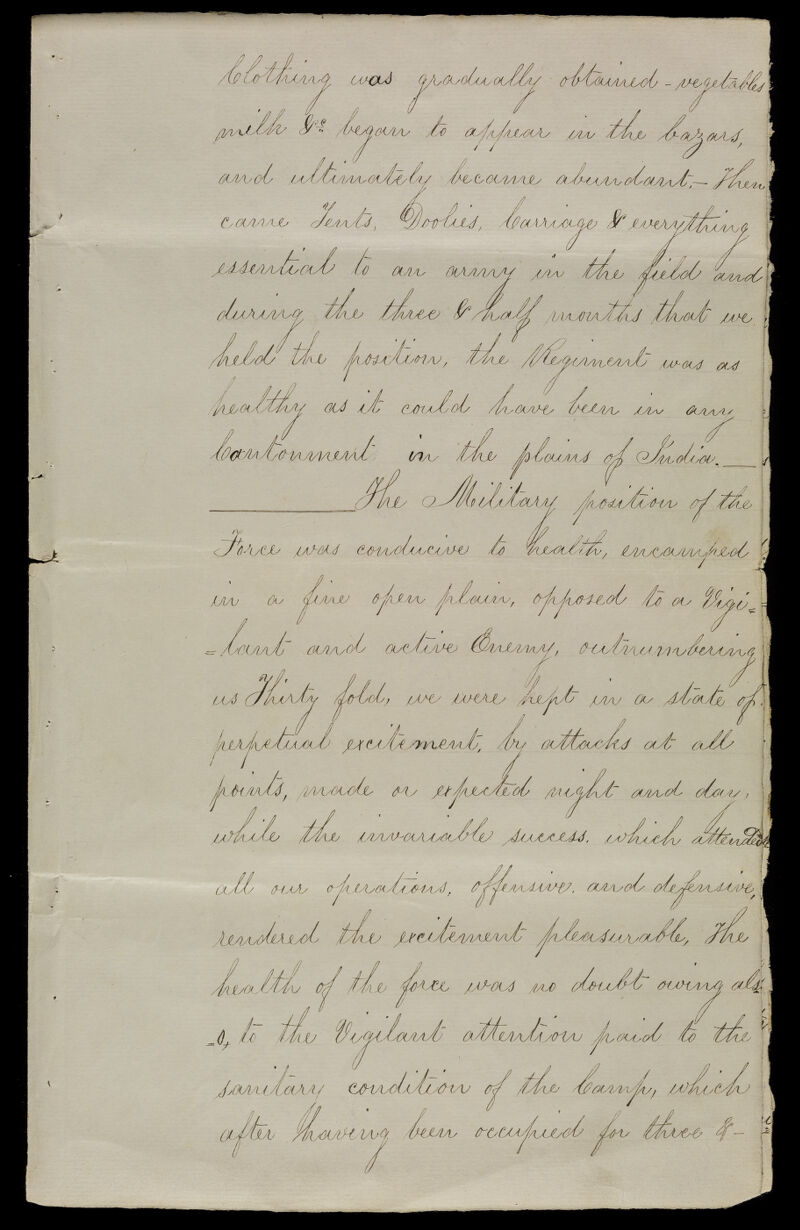 Clothing was gradually obtained - vegetables
milk &c. began to appear in the bazars,
and ultimately became abundant. - Then
came Tents, Doolies, Carriage & everything
essential to an army in the field and
during the three & half months that we
held the position, the Regiment was as
healthy as it could have been in any
Cantonment in the plains of India. —
The Military position of the
Force was conducive to health, encamped
in a fine open plain, opposed to a Vigi=
=lant and active Enemy, outnumbering
us Thirty fold, we were kept in a state of
perpetual excitement, by attacks at all
points, made or expected night and day,
while the invariable success, which attended
all our operations, offensive, and defensive,
rendered the excitement pleasurable, The
health of the force was no doubt owing als=
=o, to the Vigilant attention paid to the
sanitary condition of the Camp, which
after having been occupied for three & -